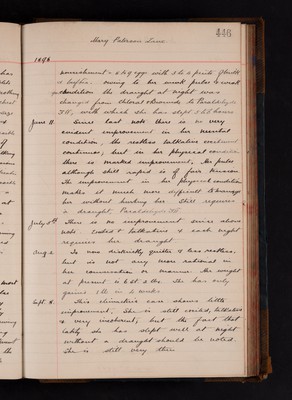 446
Mary Paterson Lane
1896
nourishment - 6 to 9 eggs with 3 to 4 pints of milk
owing to her weak pulse & weak
condition the draught at night was
changed from Chloral & Bromide to Paraldehyde
with which she has slept well
June 11. Since last note there is no very
evident improvement in her mental
condition; the restless talkative excitement
continues; but in her physical condition
there is marked improvement, Her pulse
although still rapid is of fair tension.
The improvement in her physical condition
makes it much more difficult to manage
her without hurting her. Still requires
a draught. Paraldehyde
July 5th There is no improvement since above
note. Excited & talkative & each night
requires her draught
Aug 2. Is now distinctly quieter & less restless,
but is not any more rational in
her conversation or manner. Her weight
at present is 6 st 2 lbs. She has only
gained 1 lb in 2 weeks
Sept. 8. This climacteric case shows little
improvement. She is still excited, talkative
& very incoherent, but the fact that
lately she has slept well at night
without a draught should be noted.
She is still very thin